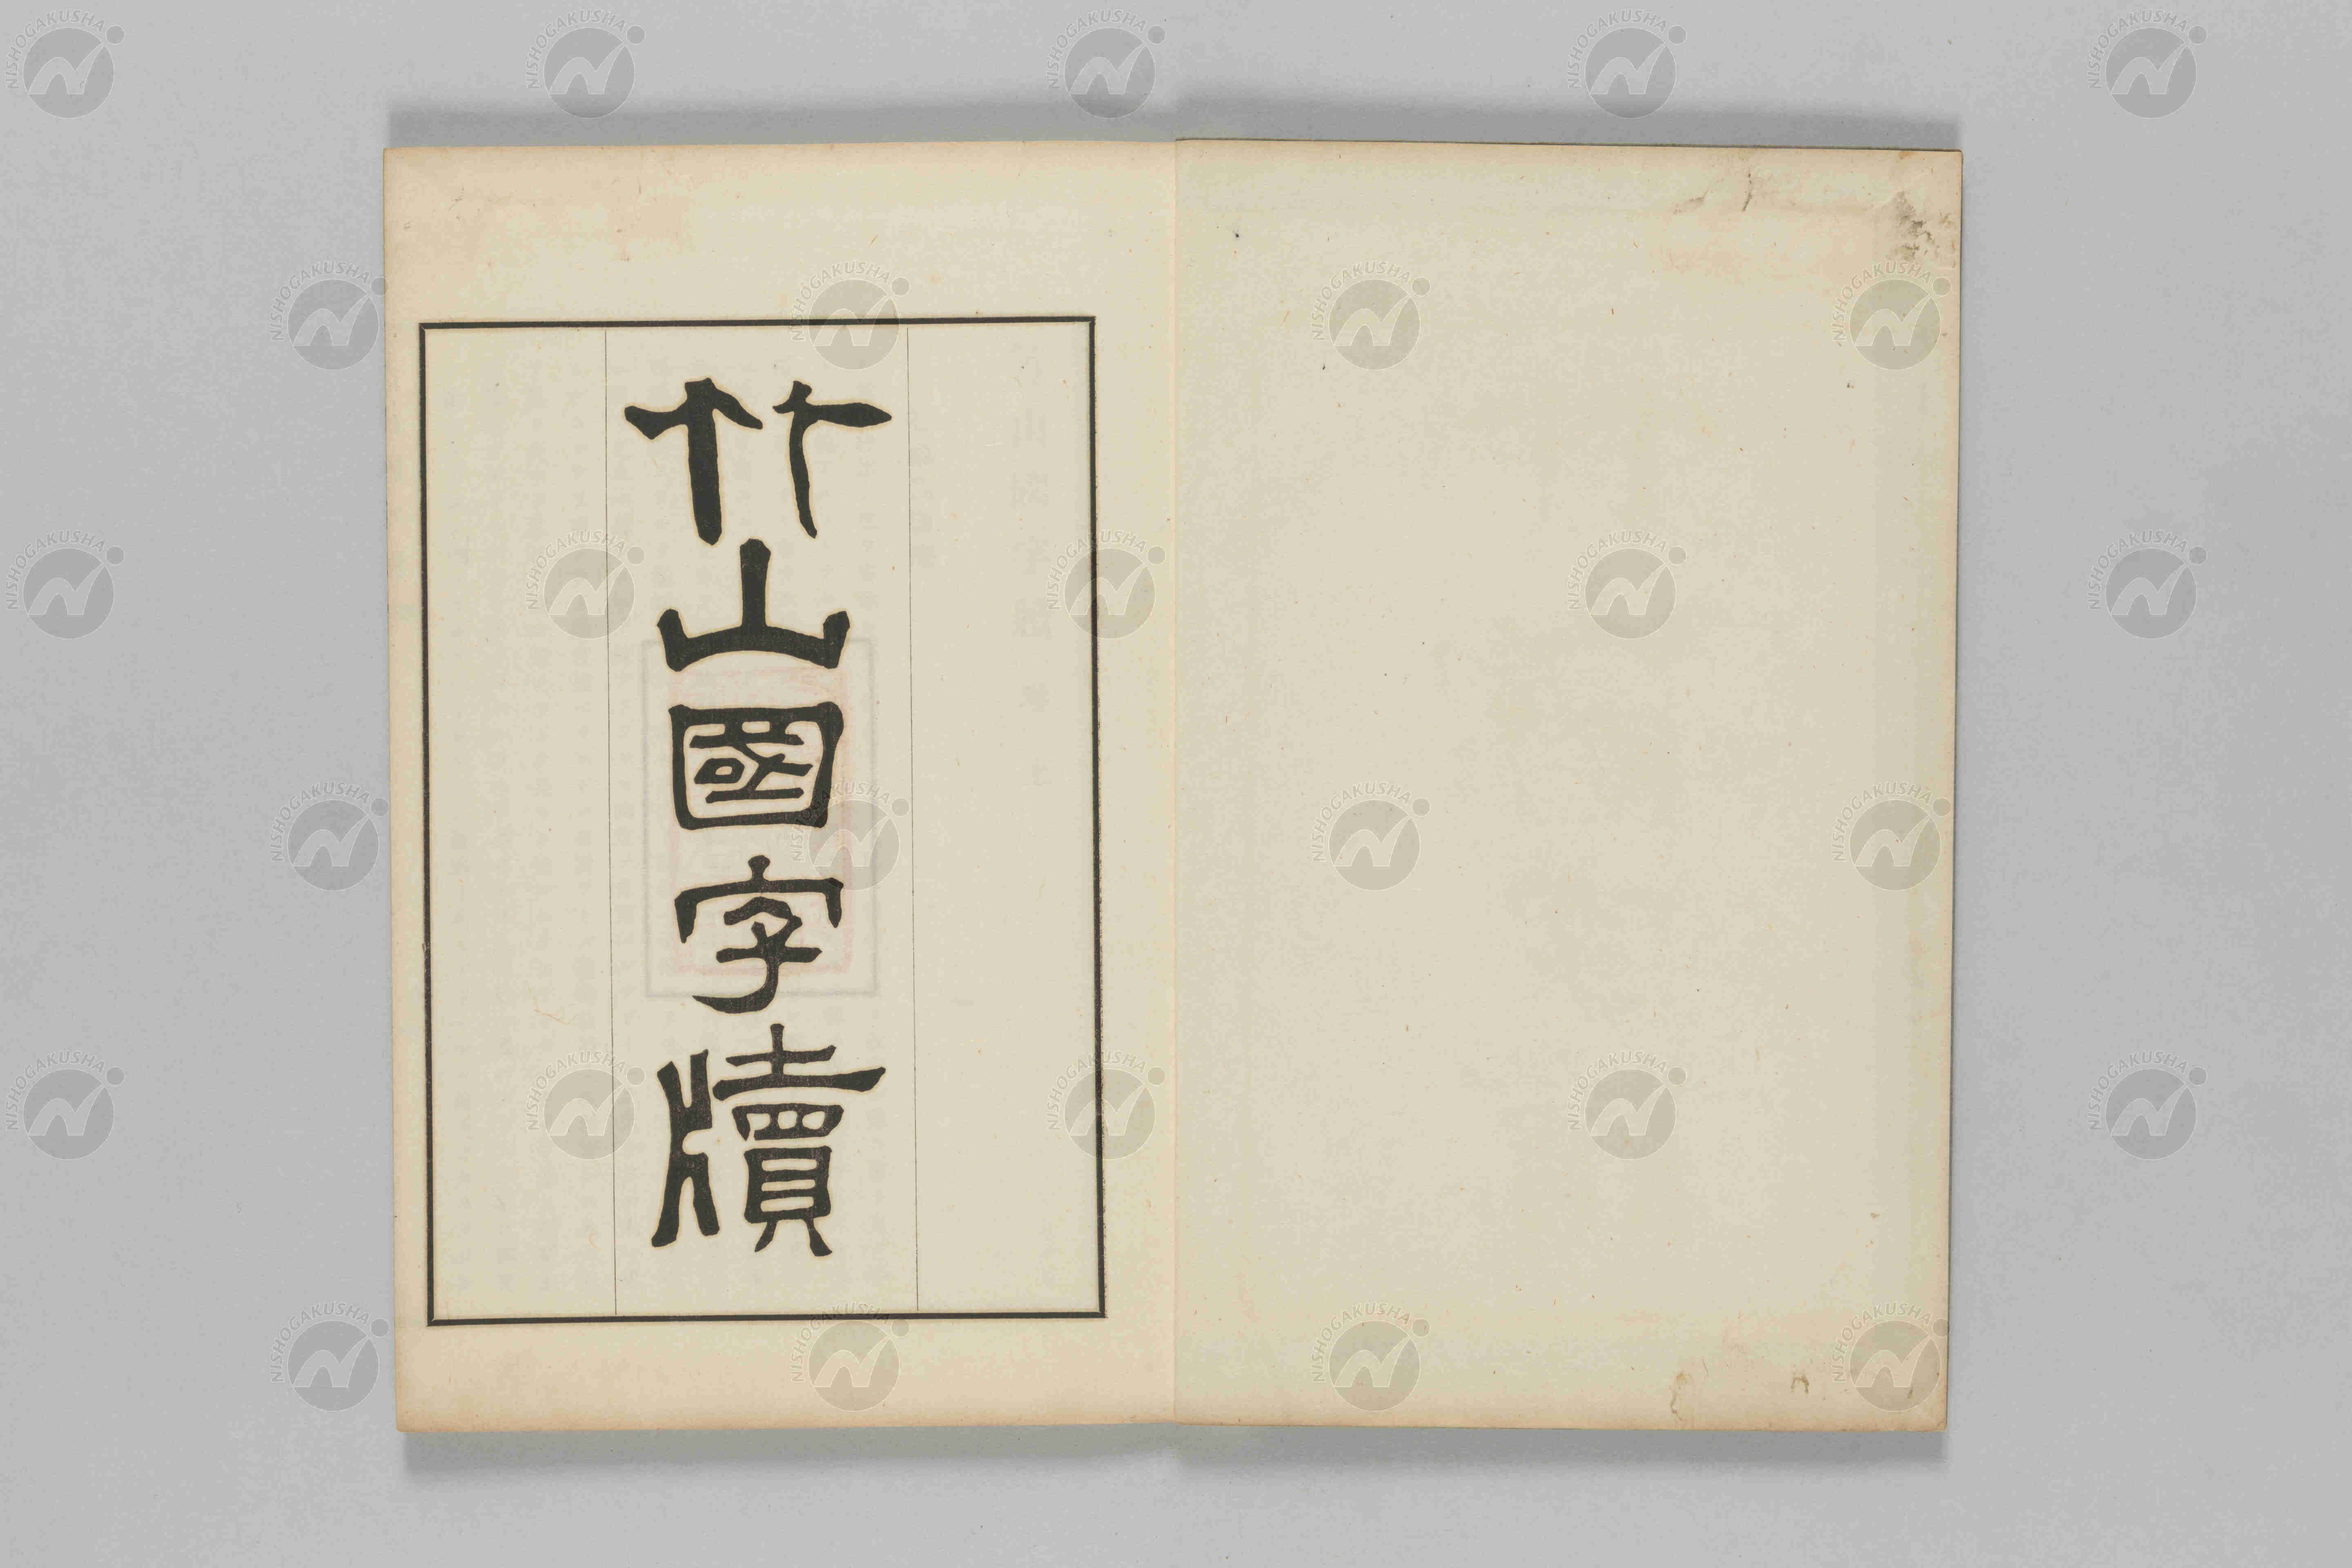 竹山國字牘